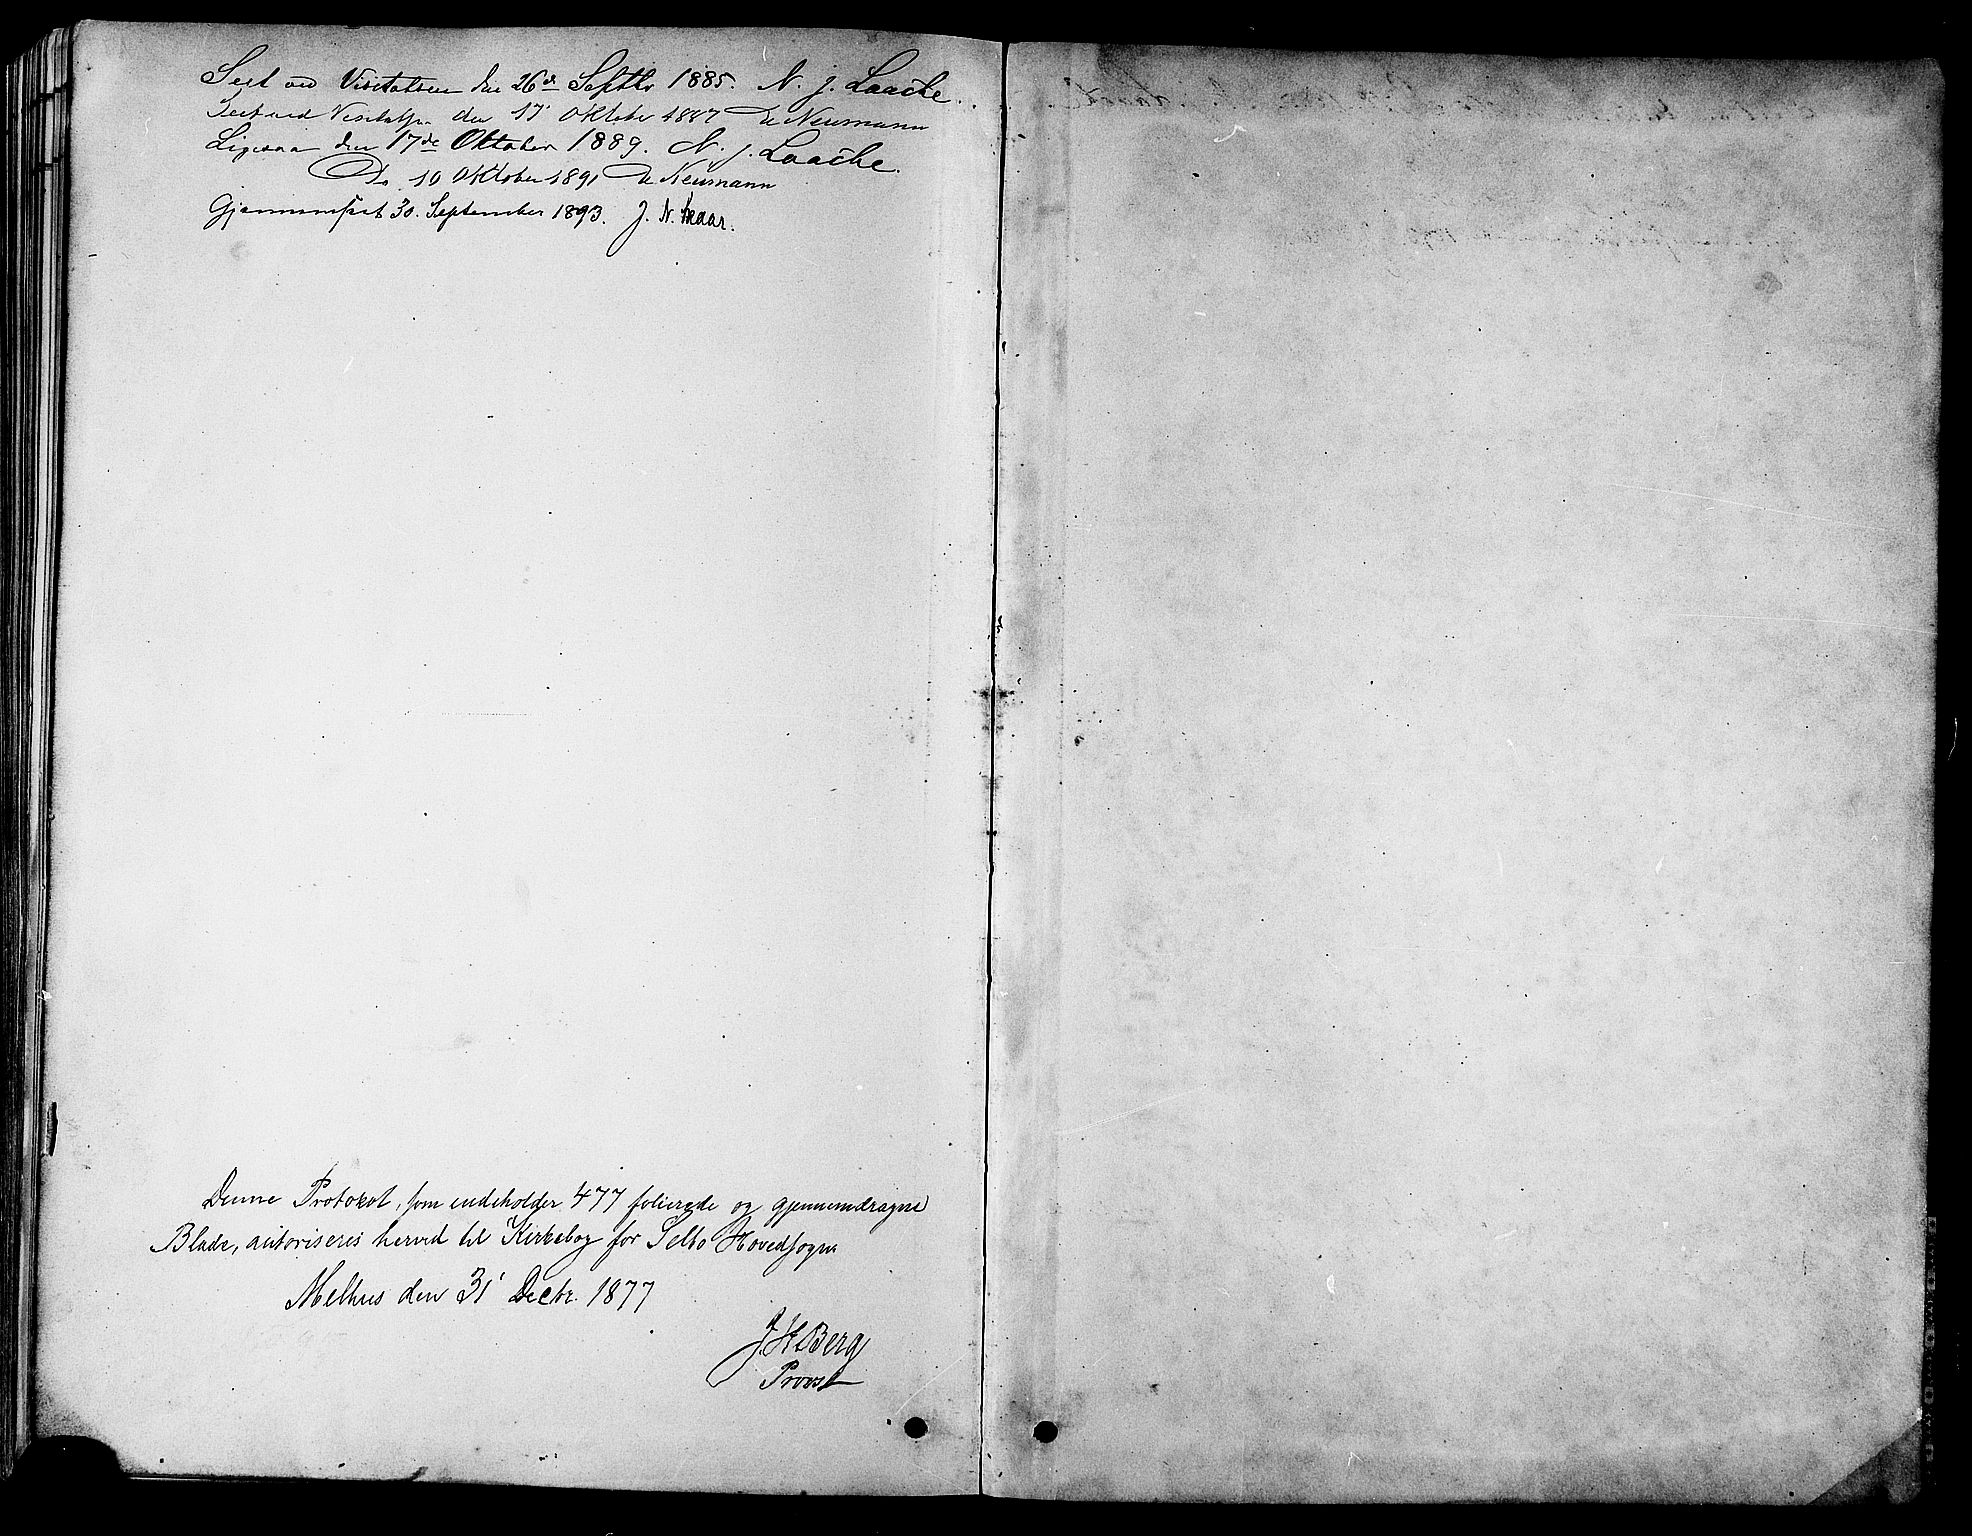 Seet ved Visitatsen den 26de Septbr 1885. N. J. Laache.
Seet ved Visitatsen den 17' Oktober 1887 De Neumann
Ligesaa den 17de Oktober 1889. N. J. Laache.
Do 10 Oktober 1891 De Neumann
Gjennemseet 30. September 1893. J. N.
Denne Protokol, som indeholder 477 folierede og gjennemdragne
Blade, autoriseres herved til Kirkebog for Selbo Hovedsogn
Melhus den 31' Decbr. 1877
J. H Berg
Provst